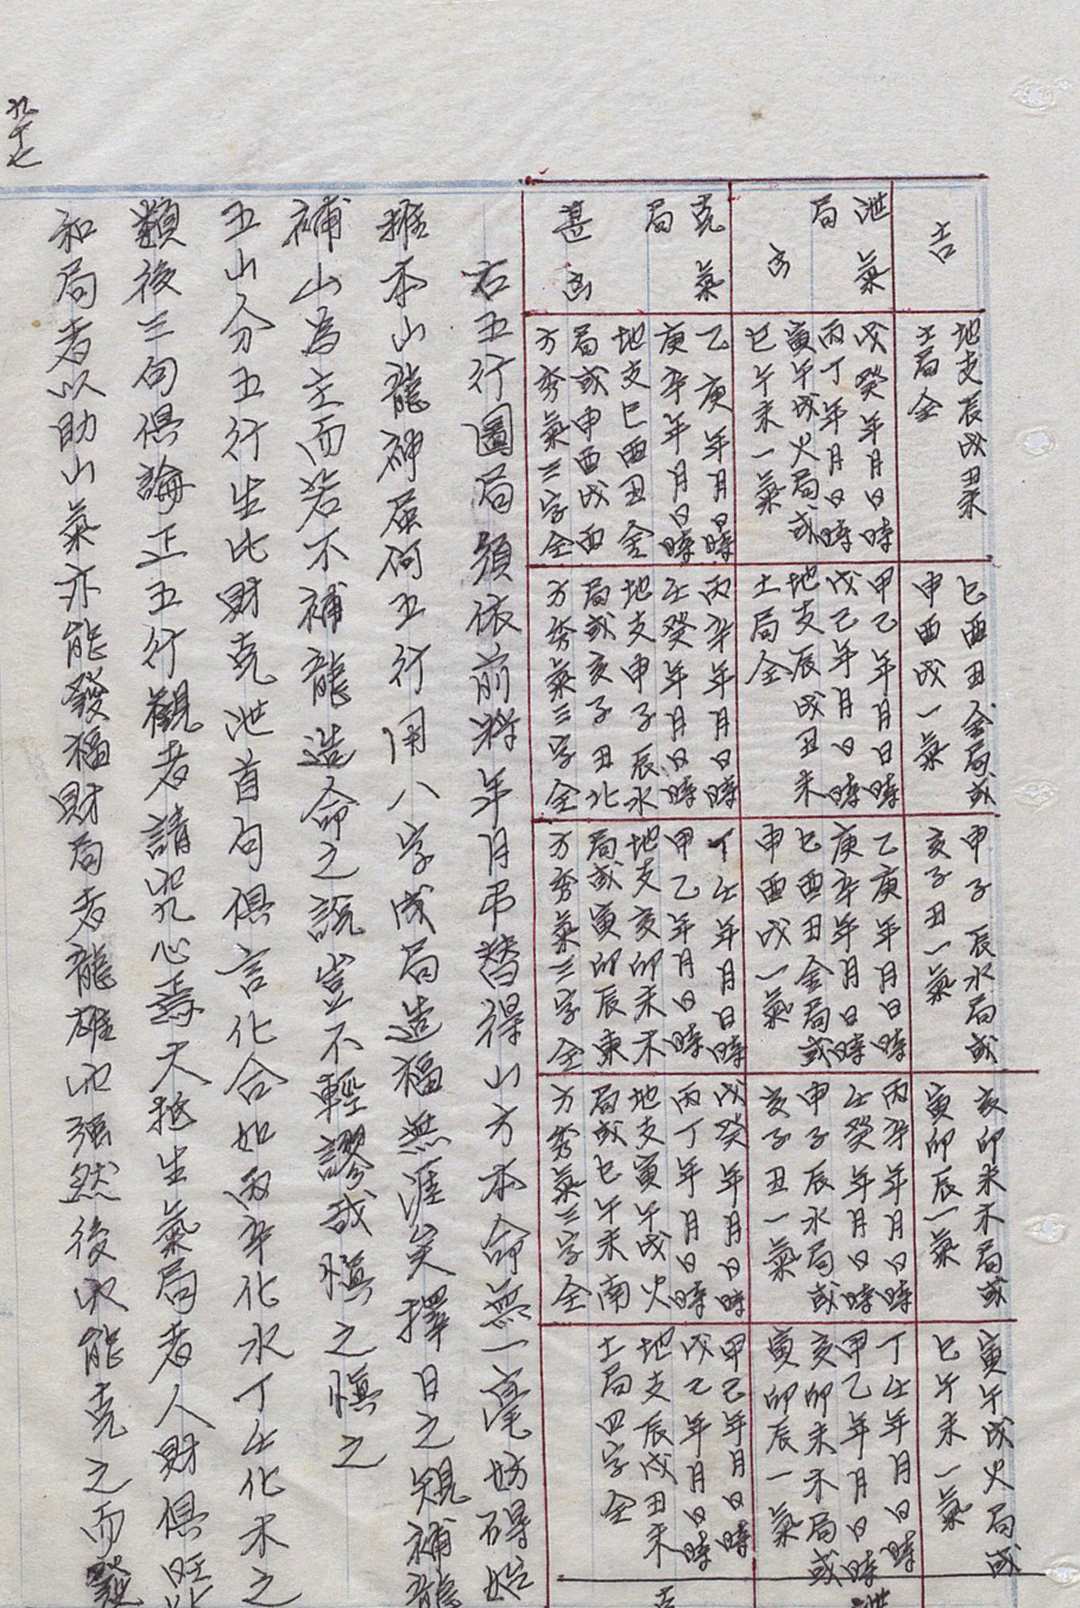 吉
地支辰戌丑未
土局全
巳酉丑金局或
申酉戌一氣
申子辰水局或
亥子丑一氣
亥卯未木局或
寅卯辰一氣
寅午戌火局或
巳午未一氣
泄氣
局
凶
戊癸年月日時
丙丁年月日時
寅午戌火局或
巳午未一氣
甲己年月日時
戊己年月日時
地支辰戌丑未
土局全
乙庚年月日時
庚辛年月日時
巳酉丑金局或
申酉戌一氣
丙辛年月日時
壬癸年月日時
申子辰水局或
亥子丑一氣
丁壬年月日時
甲乙年月日時
亥卯未木局或
寅卯辰一氣
克氣
局
甚凶
乙庚年月日時
庚辛年月日時
地支巳酉丑金
局或申酉戌西
方秀氣三字全
丙辛年月日時
壬癸年月日時
地支申子辰水
局或亥子丑北
方秀氣三字全
丁壬年月日時
甲乙年月日時
地支亥卯未木
局或寅卯辰東
方秀氣三字全
戊癸年月日時
丙丁年月日時
地支寅午戌火
局或巳午未南
方秀氣三字全
甲己年月日時
戊己年月日時
地支辰戌丑未
土局四字全
右五行圖局須依前將年月吊替得山方本命無一毫妨碍始
推本山龍神屬何五行用八字成局造福無涯矣擇日之規補龍
補山為主而若不補龍造命之說豈不輕謬哉慎之慎之
五山分五行生比財克泄首句俱言化合如丙辛化水丁壬化木之
類後三句俱論正五行觀者請究心焉大抵生氣局者人財俱旺
和局者以助山氣亦能發福財局者龍雄必强然後以能克之而
九十七